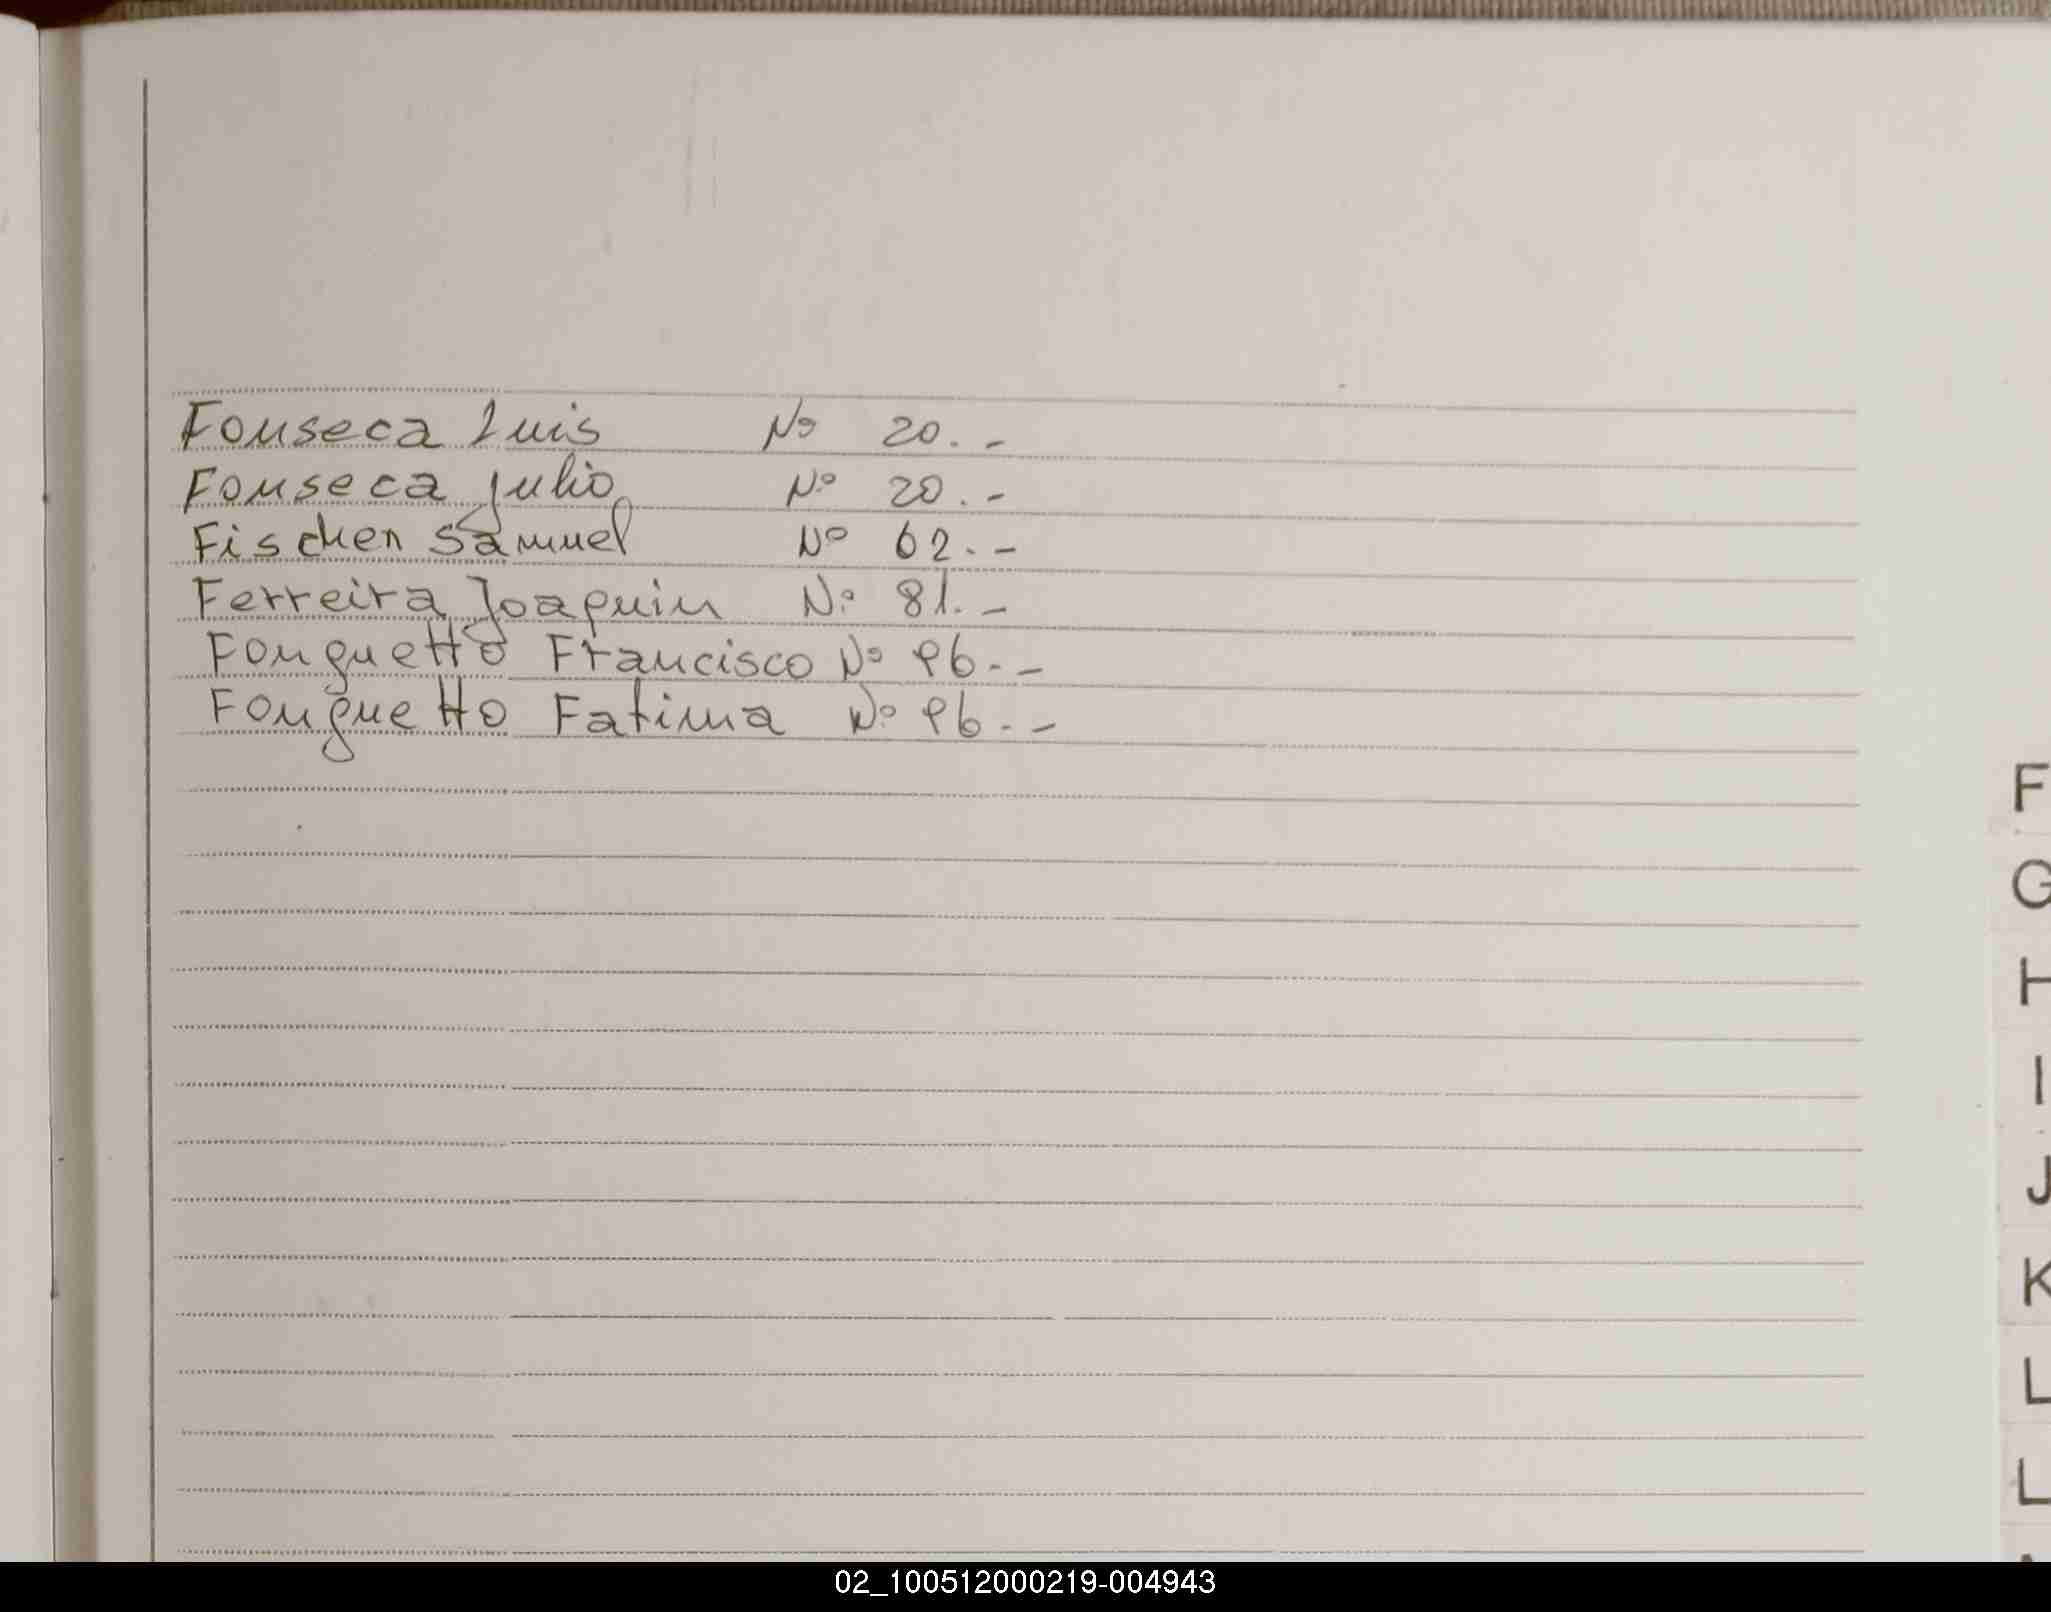 Fonseca Luis Nº 20.-
Fonseca Julio Nº 20.-
Fischer Samuel Nº 62.-
Ferreira Joaquin Nº 81.-
Fonguetto Francisco Nº 96.-
Fonguetto Fatima Nº 96.-
F
G
H
I
J
K
L
L
02_100512000219-004943